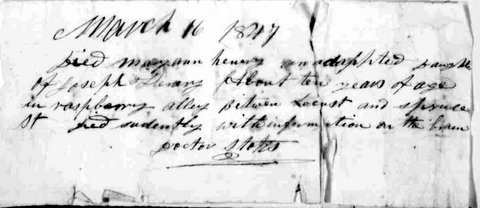 March 16 1847
Died maryann henery an adoppted daughte
of Joseph Henery About ten years of age
in raspberry alley Bitwen Locust and spruce
St Died sudenbly with information on the brain
Doctor Stotts